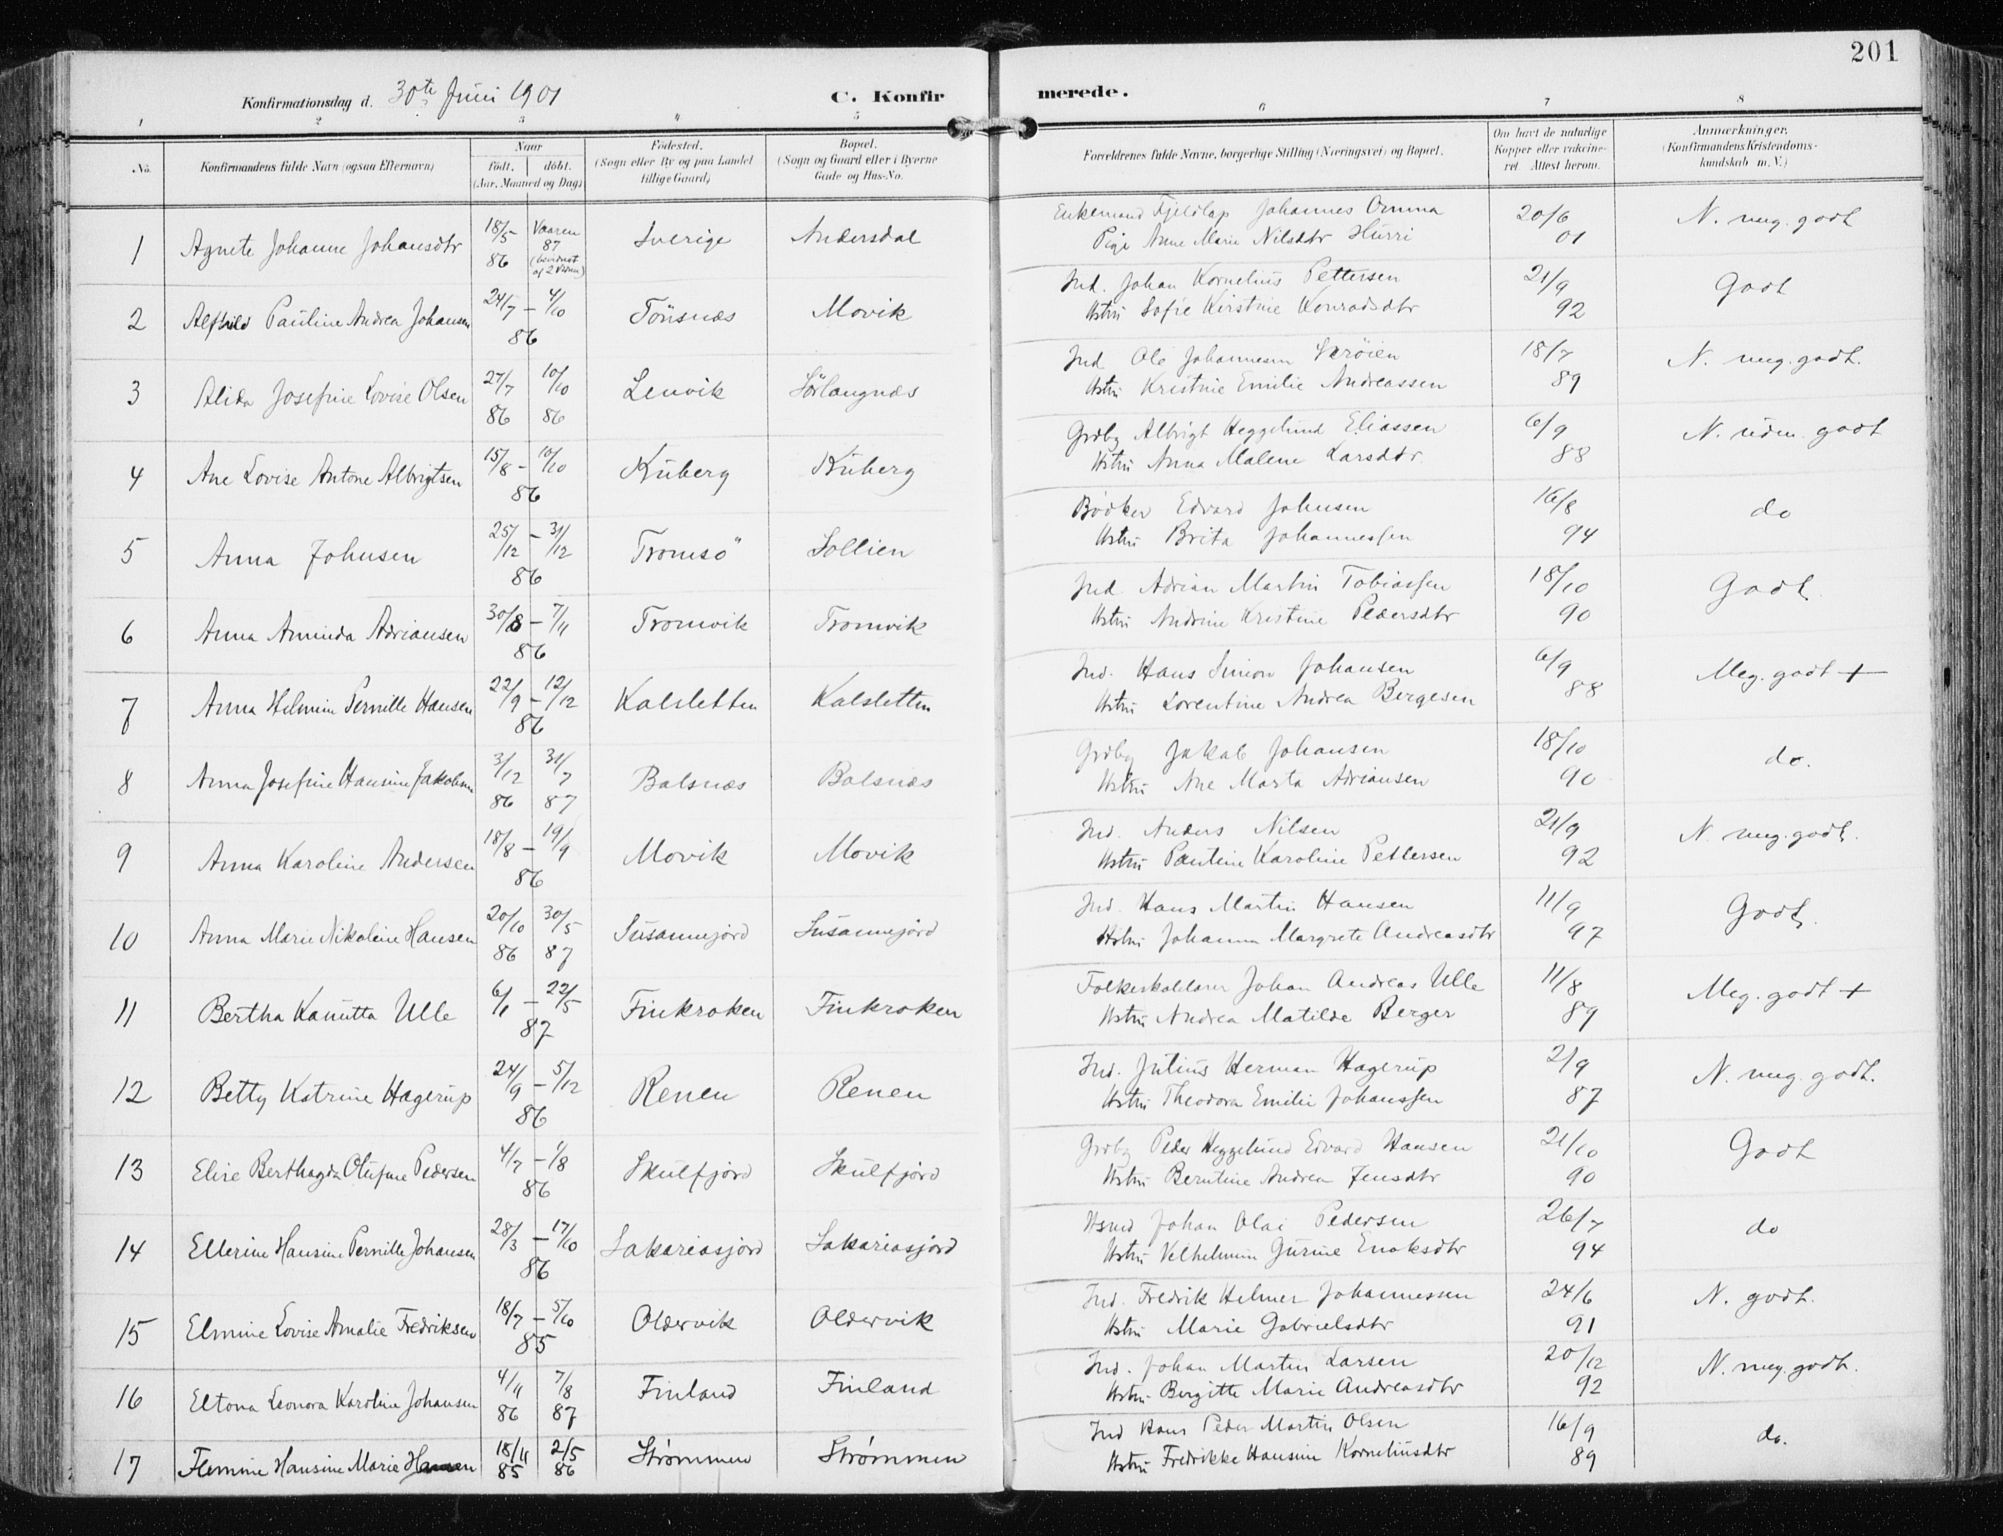 201
Konfirmationsdag d. 30te Juni 1901
C. Konfirmerede.
1 2 3 4 5 6 7 8
No.
Konfirmandens fulde Navn (ogsaa Efternavn)
Naar
født. døbt.
(Aar, Maaned og Dag)
Fødested.
(Sogn eller By og paa Landet
tillige Gaard)
Bopæl.
(Sogn og Gaard eller i Byerne
Gade og Hus-No.
Forældrenes fulde Navne, borgerlige Stilling (Næringsvei) og Bopæl.
Om havt de naturlige
Kopper eller vakcine-
ret. Attest herom.
Anmærkninger.
(Konfirmandens Kristendoms-
kundskab m. V.)
1 Agnete Johanne Johansdtr 18/5 86 Vaaren 87 (bevidnet af 2 Vidner) Sverige Andersdal
Enkemand Fjeldlap Johannes Omma 20/6 N. meg. godt
Pige Anne Marie Nilsdtr Hurri 01
2 Alfhild Pauline Andrea Johansen 24/7 – 4/10 86 Tönsnæs Movik
Ind. Johan Kornelius Pettersen 21/9 Godt
Hstru Sofie Kirstine Konradsdtr 92
3 Alida Josefine Lovise Olsen 27/7 86 10/10 86 Lenvik Sørlangnæs
Ind Ole Johannesen 18/7 N. meg. godt.
Hstru Kristine Emilie Andreassen 89
4 Ane Lovise Antone Albrigtsen 15/8 – 10/10 86 Kuberg Kuberg
Grdbg Albrigt Heggelund Eliassen 6/9 N. uden. godt
Hstru Anna Malene Larsdtr. 88
5 Anna Johnsen 25/12 – 31/12 86 Tromsö Sollien
Bödker Edvard Johnsen 16/8 do
Hstru Brita Johannessen 94
6 Anna Aminda Adriansen 30/8 – 7/11 86 Tromvik Tromvik
Ind. Adrian Martin Tobiassen 18/10 Godt.
Hstru Andrine Kristine Pedersdtr 90
7 Anna Helmine Pernille Hansen 22/9 – 12/12 86 Kalsletten Kalsletten
Ind. Hans Simon Johansen 6/9 Meg. godt +
Hstru Lorentine Andrea Bergesen 88
8 Anna Josefine Hansine Jakobsen 3/12 86 31/7 87 Balsnæs Balsnæs
Grdbg Jakob Johansen 18/10 do.
Hstru Ane Marta Adriansen 90
9 Anna Karoline Andersen 18/8 – 19/9 86 Movik Movik
Ind. Anders Nilsen 21/9 N. meg. godt.
Hstru Pauline Karoline Pettersen 92
10 Anna Marie Nikoleine Hansen 20/10 86 30/5 87 Susannejord Susannejord
Ind. Hans Martin Hansen 11/9 Godt.
Hstru Johanna Margrete Andreasdtr 97
11 Bertha Kanutta Ulle 6/1 – 22/5 87 Finkroken Finkroken
Folkeskolelærer Johan Andreas Ulle 11/8 Meg. godt +
Hstru Andrea Matilde Berger 89
12 Betty Katrine Hagerup 24/9 – 5/12 86 Renen Renen
Ind. Julius Herman Hagerup 2/9 N. meg. godt.
Hstru Theodora Emilie Johanssen 87
13 Elise Berthagda Olufine Pedersen 4/7 – 1/8 86 Skulfjord Skulfjord
Grdbg Peder Heggelund Edvard Hansen 21/10 Godt
Hstru Berntine Andrea Jensdtr 90
14 Ellerine Hansine Pernille Johansen 28/3 – 17/10 86 Sakariasjord Sakariasjord
Hsmd Johan Olai Pedersen 26/7 do
Hstru Velhelmine Gurine Enoksdtr 94
15 Elmine Lovise Amalie Fredriksen 18/7 – 5/10 85 Oldervik Oldervik
Ind. Fredrik Helmer Johannessen 24/6 N. godt.
Hstru Marie Gabrielsdtr 91
16 Eltona Leonora Karoline Johansen 4/11 86 7/8 87 Finland Finland
Ind. Johan Martin Larsen 20/12 N. meg. godt.
Hstru Birgitte Marie Andreasdtr 92
17 Flemine Hansine Marie Hansen 18/11 85 2/5 86 Strømmen Strømmen
Ind Hans Peder Martin Olsen 16/9 do.
Hstru Fredrikke Hansine Korneliusdtr 89